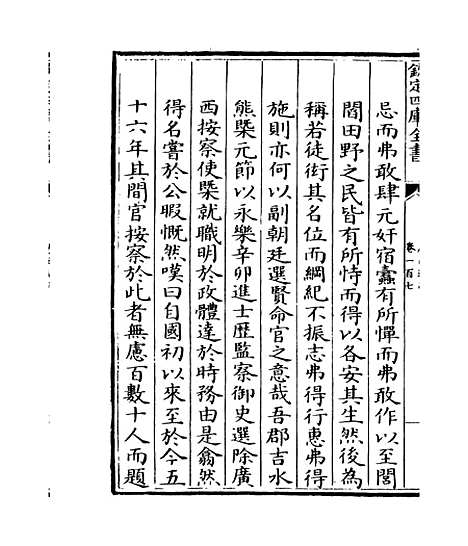 欽定四庫全書
卷一百七
忌而弗敢肆元奸宿蠧有所憚而弗敢作以至閭
閻田野之民皆有所恃而得以各安其生然後為
稱若徒衒其名位而綱紀不振志弗得行惠弗得
施則亦何以副朝廷選賢命官之意哉吾郡吉水
熊槩元節以永樂辛卯進士歷監察御史選除廣
西按察使槩就職明於政體達於時務由是翕然
得名嘗於公暇慨然嘆曰自國初以來至於今五
十六年其間官按察於此者無慮百數十人而題